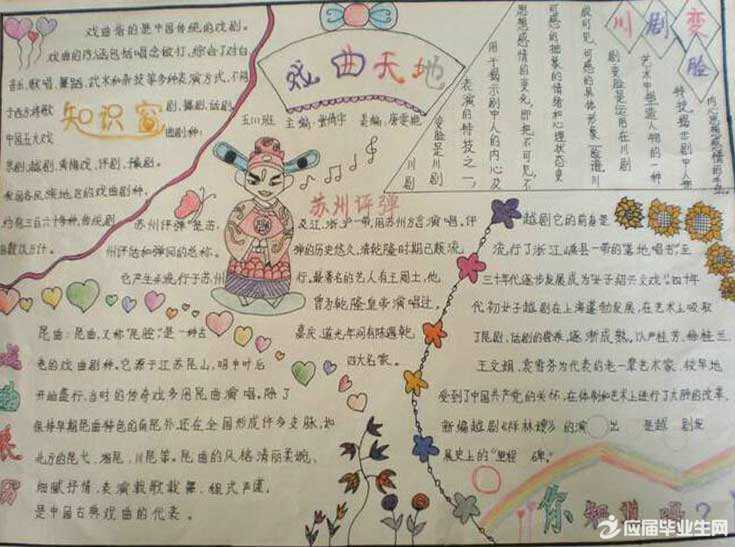 戏曲天地
五川班 主编:
戏曲指的是中国传统的戏剧。
戏曲的内涵包括唱念做打,综合了对白
音乐、歌唱、舞蹈、武术和杂技等多种表演方式,不同
于西方将歌剧、舞剧、话剧
知识窗
中国五大戏曲剧种:
京剧、越剧、黄梅戏、评剧、豫剧。
我国各民族地区的戏曲剧种,
约有三百六十多种,传统剧
目数以万计。
川剧变脸
变脸是川剧
表演的特技之一,
用于揭示剧中人的内心及
思想感情的变化,即把不可见、不
可感的抽象的情绪和心理状态变
成可见、可感的具体形象
川剧
剧变脸是运用在川剧
艺术中塑造人物的一种
特技,揭示剧中人物
内心思想感情的
苏州评弹
苏州评弹"是苏
州评话和弹词的总称。
它产生并流行于苏州
及江、浙、沪一带,用苏州方言演唱,评
弹的历史悠久,清乾隆时期已颇流
行,最著名的艺人有王周士,他
曾为乾隆皇帝演唱过。
嘉庆、道光年间有陈遇乾
四大名家。
昆曲:昆曲,又称"昆腔"是一种古
老的戏曲剧种。它源于江苏昆山,明中叶后
开始盛行,当时的传奇戏多用昆曲演唱。除了
保持早期昆曲特色的南昆外,还在全国形成许多支脉,如
北方的昆弋、湘昆、川昆等。昆曲的风格清丽柔婉、
细腻抒情,表演载歌载舞、程式严谨,
是中国古典戏曲的代表。
越剧它的前身是
流行了浙江嵊县一带的"落地唱书"至
三十年代逐步发展成为"女子绍兴文戏"。四十年
代初女子越剧在上海蓬勃发展,在艺术上吸取
了昆剧、话剧的营养,逐渐成熟。以尹桂芳、
王文娟、袁雪芬为代表的老一辈艺术家,较早地
受到了中国共产党的关怀,在体制和艺术上进行了大胆的改革,
新编越剧《祥林嫂》的演出是越剧发
展史上的"里程碑。"
"你知道吗?
应届毕业生网